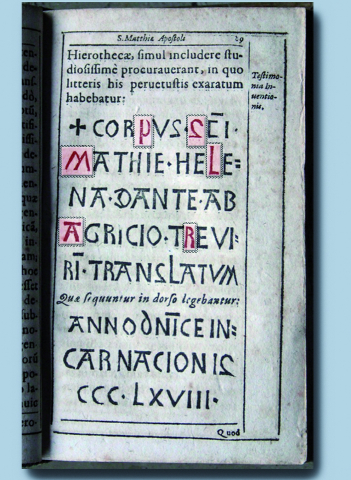 S. Matthiæ Apostoli 29
Hierothecæ, simul includere stu-
diosissimè procurauerant, in quo
litteris his peruetustis exaratum
habebatur:
Testimo-
nia in-
uentio-
nis.
+ CORPVS·SC̄I·
MATHIE·HELE-
NA·DANTE·AB
AGRICIO·TREVI-
RĪ·TRANSLATVM
Quæ sequuntur in dorso legebantur:
ANNO DN̄ICE IN-
CARNACIONIS
CCC·LXVIII·
Quod